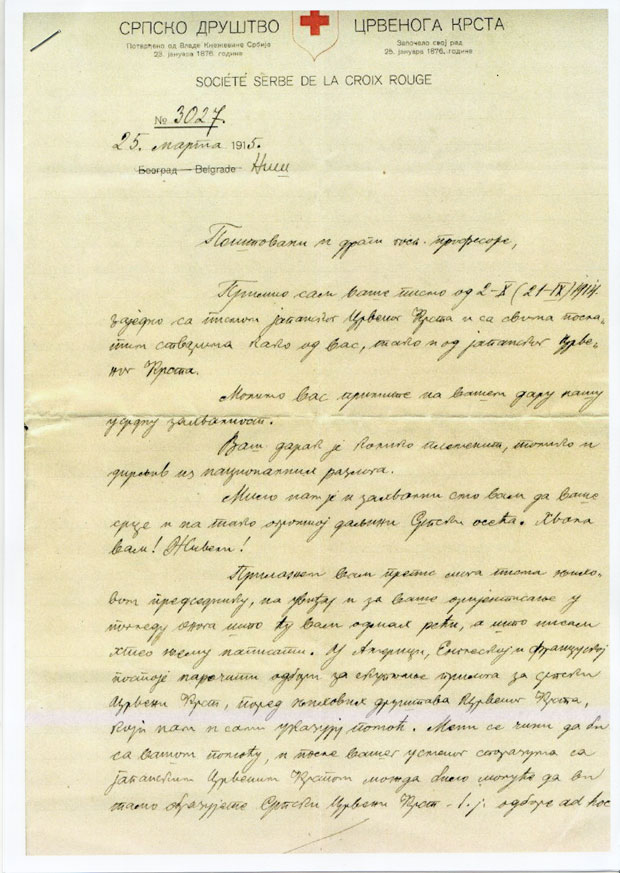 СРПСКО ДРУШТВО ЦРВЕНОГА КРСТА
Потврђено од Владе Кнежевине Србије Започело свој рад
23. јануара 1876. године 25. јануара 1876. године
SOCIÉTÉ SERBE DE LA CROIX ROUGE
№ 3027.
25. марта 1915.
Београд — Belgrade Ниш
Поштовани и драги госп. професоре,
Примио сам Ваше писмо од 2-X (21-IX) 1914.
заједно са писмом јапанског Црвеног Крста и са свима посла-
тим стварима како од Вас, тако и од јапанског Црве-
ног Крста.
Молимо Вас примите на Вашем дару нашу
усрдну захвалност.
Ваш дарак је колико племенит, толико и
дирљив из националних разлога.
Мило нам је и захвални смо вам да ваше
срце и на тако огромној даљини Српски осећа. Хвала
вам! Живели!
Прилажем вам препис мога писма њихо-
вом председнику, на увиђај и за ваше оријентисање у
погледу онога што ћу вам одмах рећи, а што нисам
хтео њему написати. У Америци, Енглеској и Француској
постоје нарочити одбори за скупљање прилога за српски
Црвени Крст, поред њихових друштава Црвеног Крста,
која нам и сами указују помоћ. Мени се чини да би
са вашом помоћу, и после вашег усменог споразума са
јапанским Црвеним Крстом можда било могуће да ви
тамо образујете Српски Црвени Крст - т.ј. одборе ad hoc